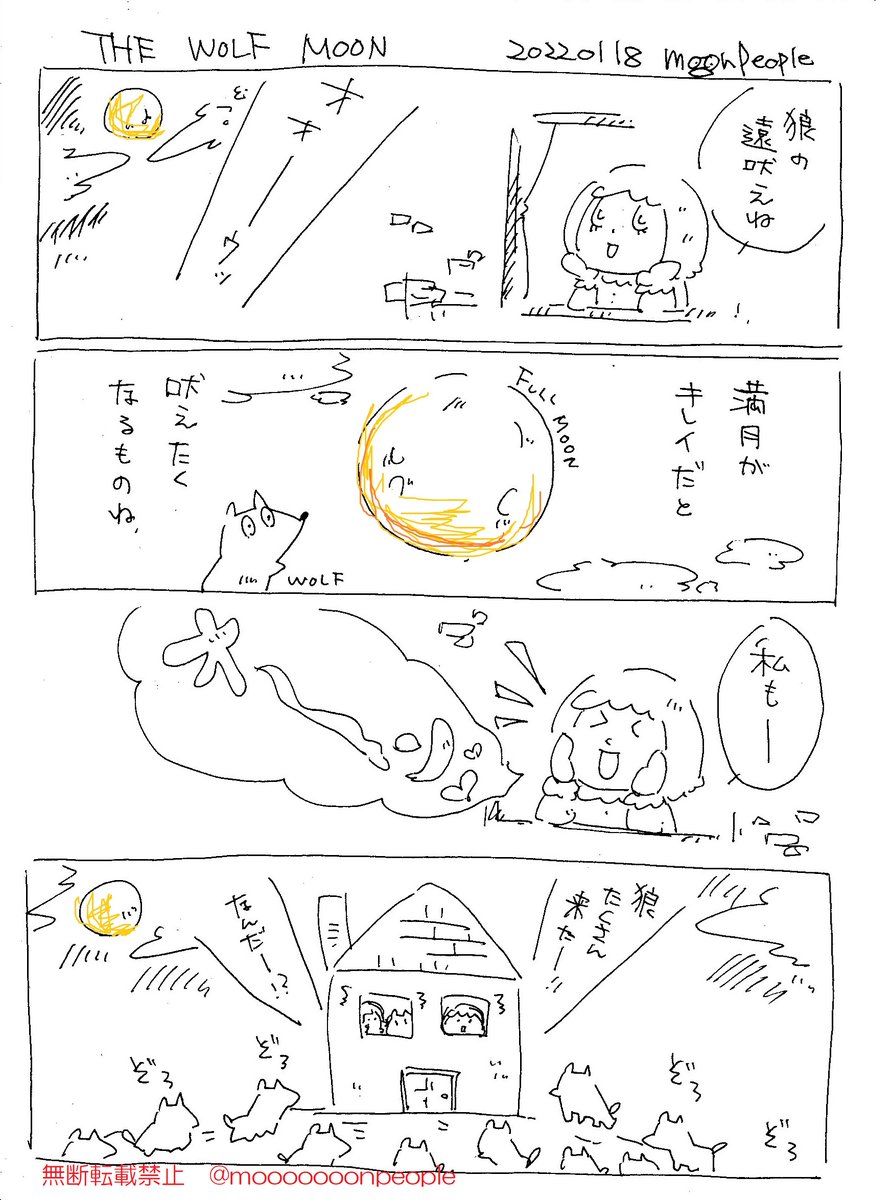 THE WOLF MOON
20220118 moonpeople
狼の
遠吠えね
オオーウッ
満月が
キレイだと
FULL MOON
吠えたく
なるものね、
WOLF
私もー
狼
たくさん
来たー!!
なんだー!?
ぞろ
ぞろ
ぞろ
ぞろ
無断転載禁止 @moooooooonpeople